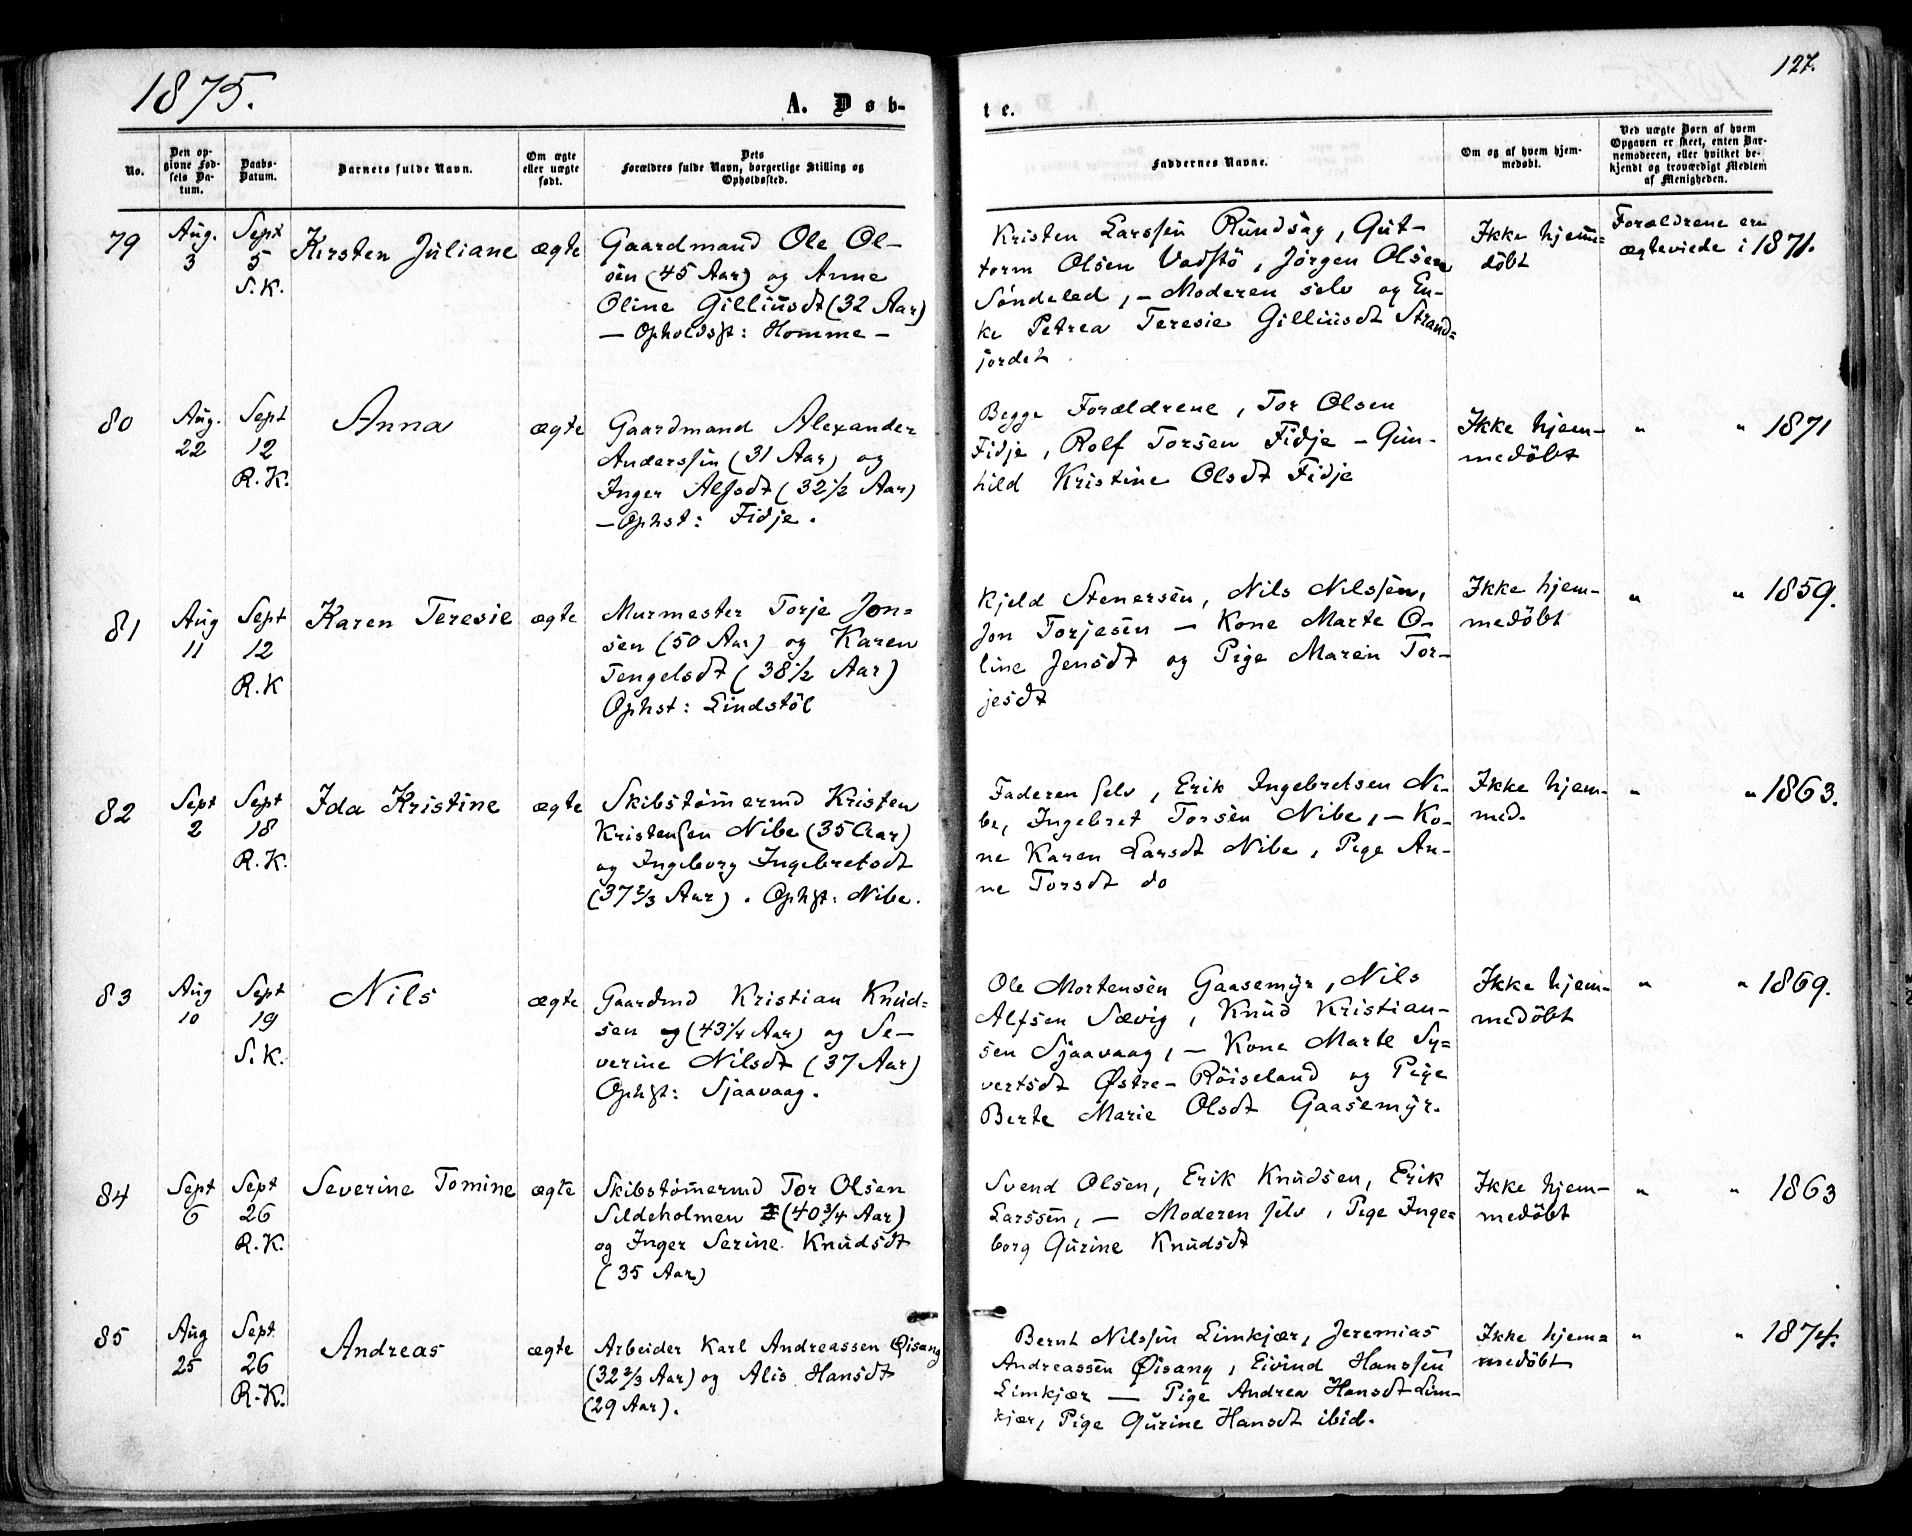 1875.
127.
A. Døb-
te.
No.
Den op-
givne Fød-
sels Da-
tum.
Daabs-
Datum.
Barnets fulde Navn.
Om ægte
eller uægte
født.
Dets
Forældres fulde Navn, borgerlige Stilling og
Opholdssted.
Faddernes Navne.
Om og af hvem hjem-
medøbt.
Ved uægte Børn af hvem
Opgaven er skeet, enten Bar-
nemoderen, eller hvilket be-
kjendt og troværdigt Medlem
af Menigheden.
79
Aug.
3
Sept
5
S.K.
Kirsten Juliane
ægte
Gaardmand Ole Ol-
sen (45 Aar) og Anne
Oline Gilliusdt (32 Aar)
— Opholdsst: Homme —
Kristen Larssen Rundsag, Gut-
torm Olsen Vadstö, Jörgen Olsen
Söndeled, — Moderen selv og En-
ke Petrea Teresie Gilliusdt Strand=
jordet
Ikke hjem=
döbt
Forældrene ere
ægteviede i 1871.
80
Aug.
22
Sept
12
R.K.
Anna
ægte
Gaardmand Alexander
Anderssen (31 Aar) og
Inger Alfsdt (32 1/2 Aar)
—Ophst: Fidje.
Begge Forældrene, Tor Olsen
Fidje, Rolf Torsen Fidje — Gun-
hild Kristine Olsdt Fidje
Ikke hjem-
medöbt
" " 1871
81
Aug
11
Sept
12
R.K
Karen Teresie
ægte
Murmester Torje Jon=
sen (50 Aar) og Karen
Tengelsdt (38 1/2 Aar)
Ophst: Lindstöl
Kjeld Stenersen, Nils Nilssen,
Jon Torjesen — Kone Marte O-
line Jensdt og Pige Maren Tor-
jesdt
Ikke hjem-
medöbt
" " 1859.
82
Sept
2
Sept
18
R.K.
Ida Kristine
ægte
Skibstömermd Kristen
Kristensen Nibe (35 Aar)
og Ingeborg Ingebretsdt
(37 2/3 Aar). Ophst: Nibe.
Faderen selv, Erik Ingebretsen Ni-
be, Ingebret Torsen Nibe, — Ko-
ne Karen Larsdt Nibe, Pige An-
ne Torsdt do
Ikke hjem-
med.
" " 1863.
83
Aug
10
Sept
19
S.K.
Nils
ægte
Gaardmd Kristian Knud=
sen (43 1/4 Aar) og Se-
verine Nilsdt (37 Aar)
Ophst: Sjaavaag.
Ole Mortensen Gaasemyr, Nils
Alfsen Sævig, Knud Kristian-
sen Sjaavaag, — Kone Marte Sy=
vertsdt Østre-Röiseland og Pige
Berte Marie Olsdt Gaasemyr.
Ikke hjem-
medöbt
" " 1869.
84
Sept
6
Sept
26
R.K.
Severine Tomine
ægte
Skibstömermd Tor Olsen
Sildeholmen (40 3/4 Aar)
og Inger Serine Knudsdt
(35 Aar)
Svend Olsen, Erik Knudsen, Erik
Larssen, — Moderen selv, Pige Inge=
borg Gurine Knudsdt
Ikke hjem-
medöbt
" " 1863
85
Aug
25
Sept
26
R.K.
Andreas
ægte
Arbeider Karl Andreassen Øisang
(32 2/3 Aar) og Alis Hansdt
(29 Aar).
Bernt Nilssen Limkjær, Jeremias
Andreassen Øisang, Eivind Hanssen
Limkjær — Pige Andrea Hansdt Lim-
kjær, Pige Gurine Hansdt ibid.
Ikke hjem=
medöbt
" " 1874.